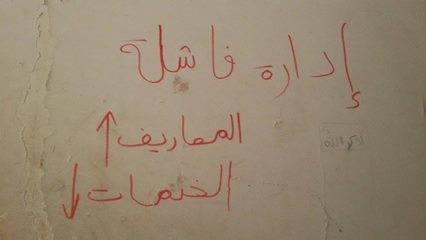 إدارة فاشلة
المصاريف ↑
الخدمات ↓